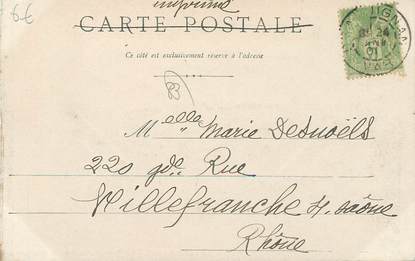 imprimé
6€
CARTE POSTALE
Ce côté est exclusivement réservé à l'adresse
83
Melle Marie Desnoëls
220 gde Rue
Villefranche s. saône
Rhône